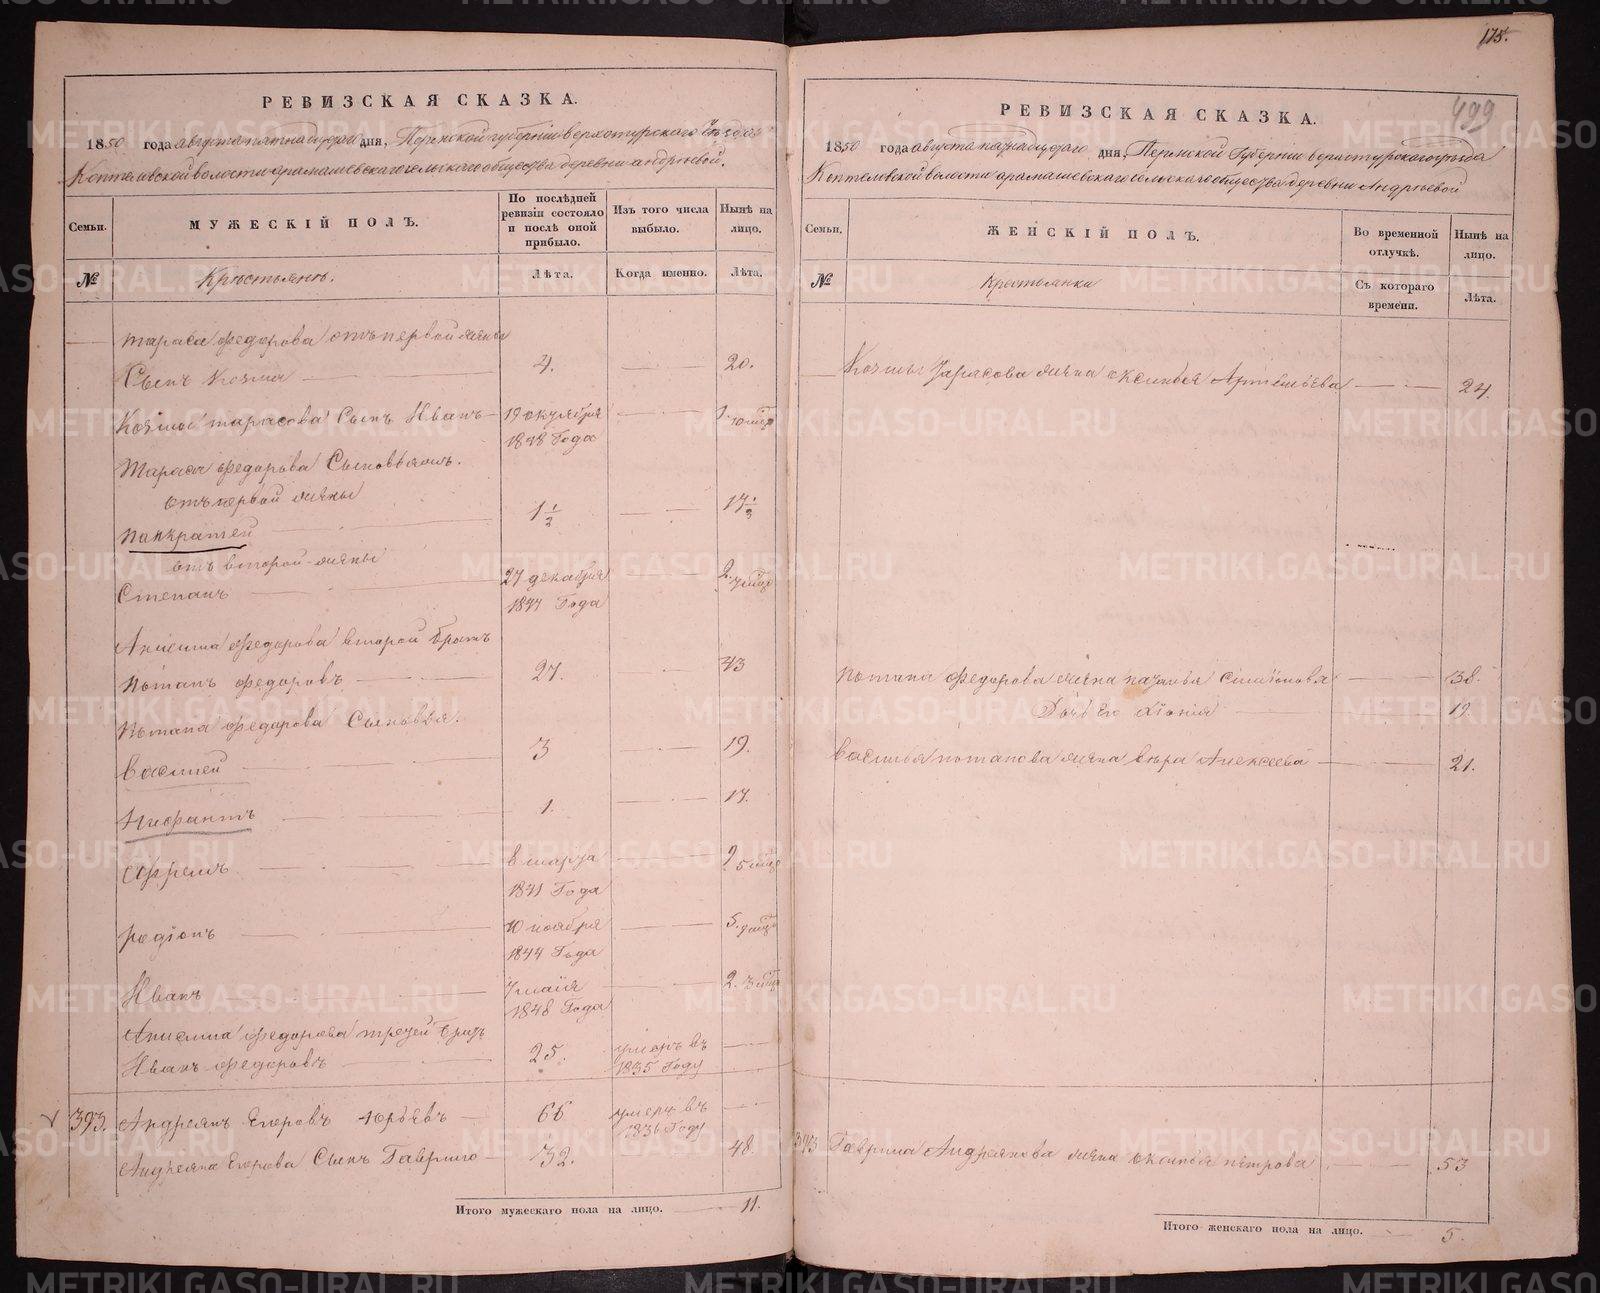 175.
499
РЕВИЗСКАЯ СКАЗКА.
1850 года августа пятнадцатаго дня, Пермской губернiи верхотурскаго уезда
Коптеловской волости арамашевскаго сельскаго общества деревни андрѣевой.
Семьи. МУЖЕСКІЙ ПОЛЪ. По послѣдней ревизіи состояло и послѣ оной прибыло. Изъ того числа выбыло. Нынѣ на лицо.
№ Крестьяне. Лѣта. Когда именно. Лѣта.
тараса федорова отъ первой жены
Сынъ Козма 4. 20.
Козмы тарасова Сынъ Иванъ 19 октября 1848 Года 1. 10 мѣц
Тараса федорова Сыновья
отъ первой жены
панкратей 1 1/2 17 1/2
отъ второй жены
Степанъ 27 декабря 1847 Года 2. 7 мѣц
Анисима федорова второй братъ
Потапъ федоровъ 27. 43
Потапа федорова Сыновья.
Василей 3 19.
Нифантъ 1. 17.
Ефремъ 8 марта 1841 Года 9 5 мѣц
родіонъ 10 ноября 1844 Года 5. 9 мѣц
Иванъ 7 маія 1848 Года 2. 3 мѣц
Анисима федорова третей братъ
Иванъ федоровъ 25. умеръ въ 1835 Году
393. Андреянъ Егоровъ Юрьевъ 66 умеръ въ 1836 Году
Андреяна Егорова Сынъ Гаврило 32. 48.
Итого мужескаго пола на лицо. 11.
РЕВИЗСКАЯ СКАЗКА.
1850 года августа пятнадцатаго дня, Пермской Губерніи верхотурскаго уезда
Коптеловской волости арамашевскаго сельскаго общества деревни Андрѣевой
Семьи. ЖЕНСКІЙ ПОЛЪ. Во временной отлучкѣ. Нынѣ на лицо.
№ Крестьянки Съ котораго времени. Лѣта.
Козмы Тарасова жена оксинья Артемьева 24.
Потапа федорова жена Симіонова 38.
Дочь Его хіонія 19.
Василья потапова жена вѣра Алексеева 21.
393 Гаврила Андреянова жена оксинья петрова 53
Итого женскаго пола на лицо. 5.
METRIKI.GASO-URAL.RU